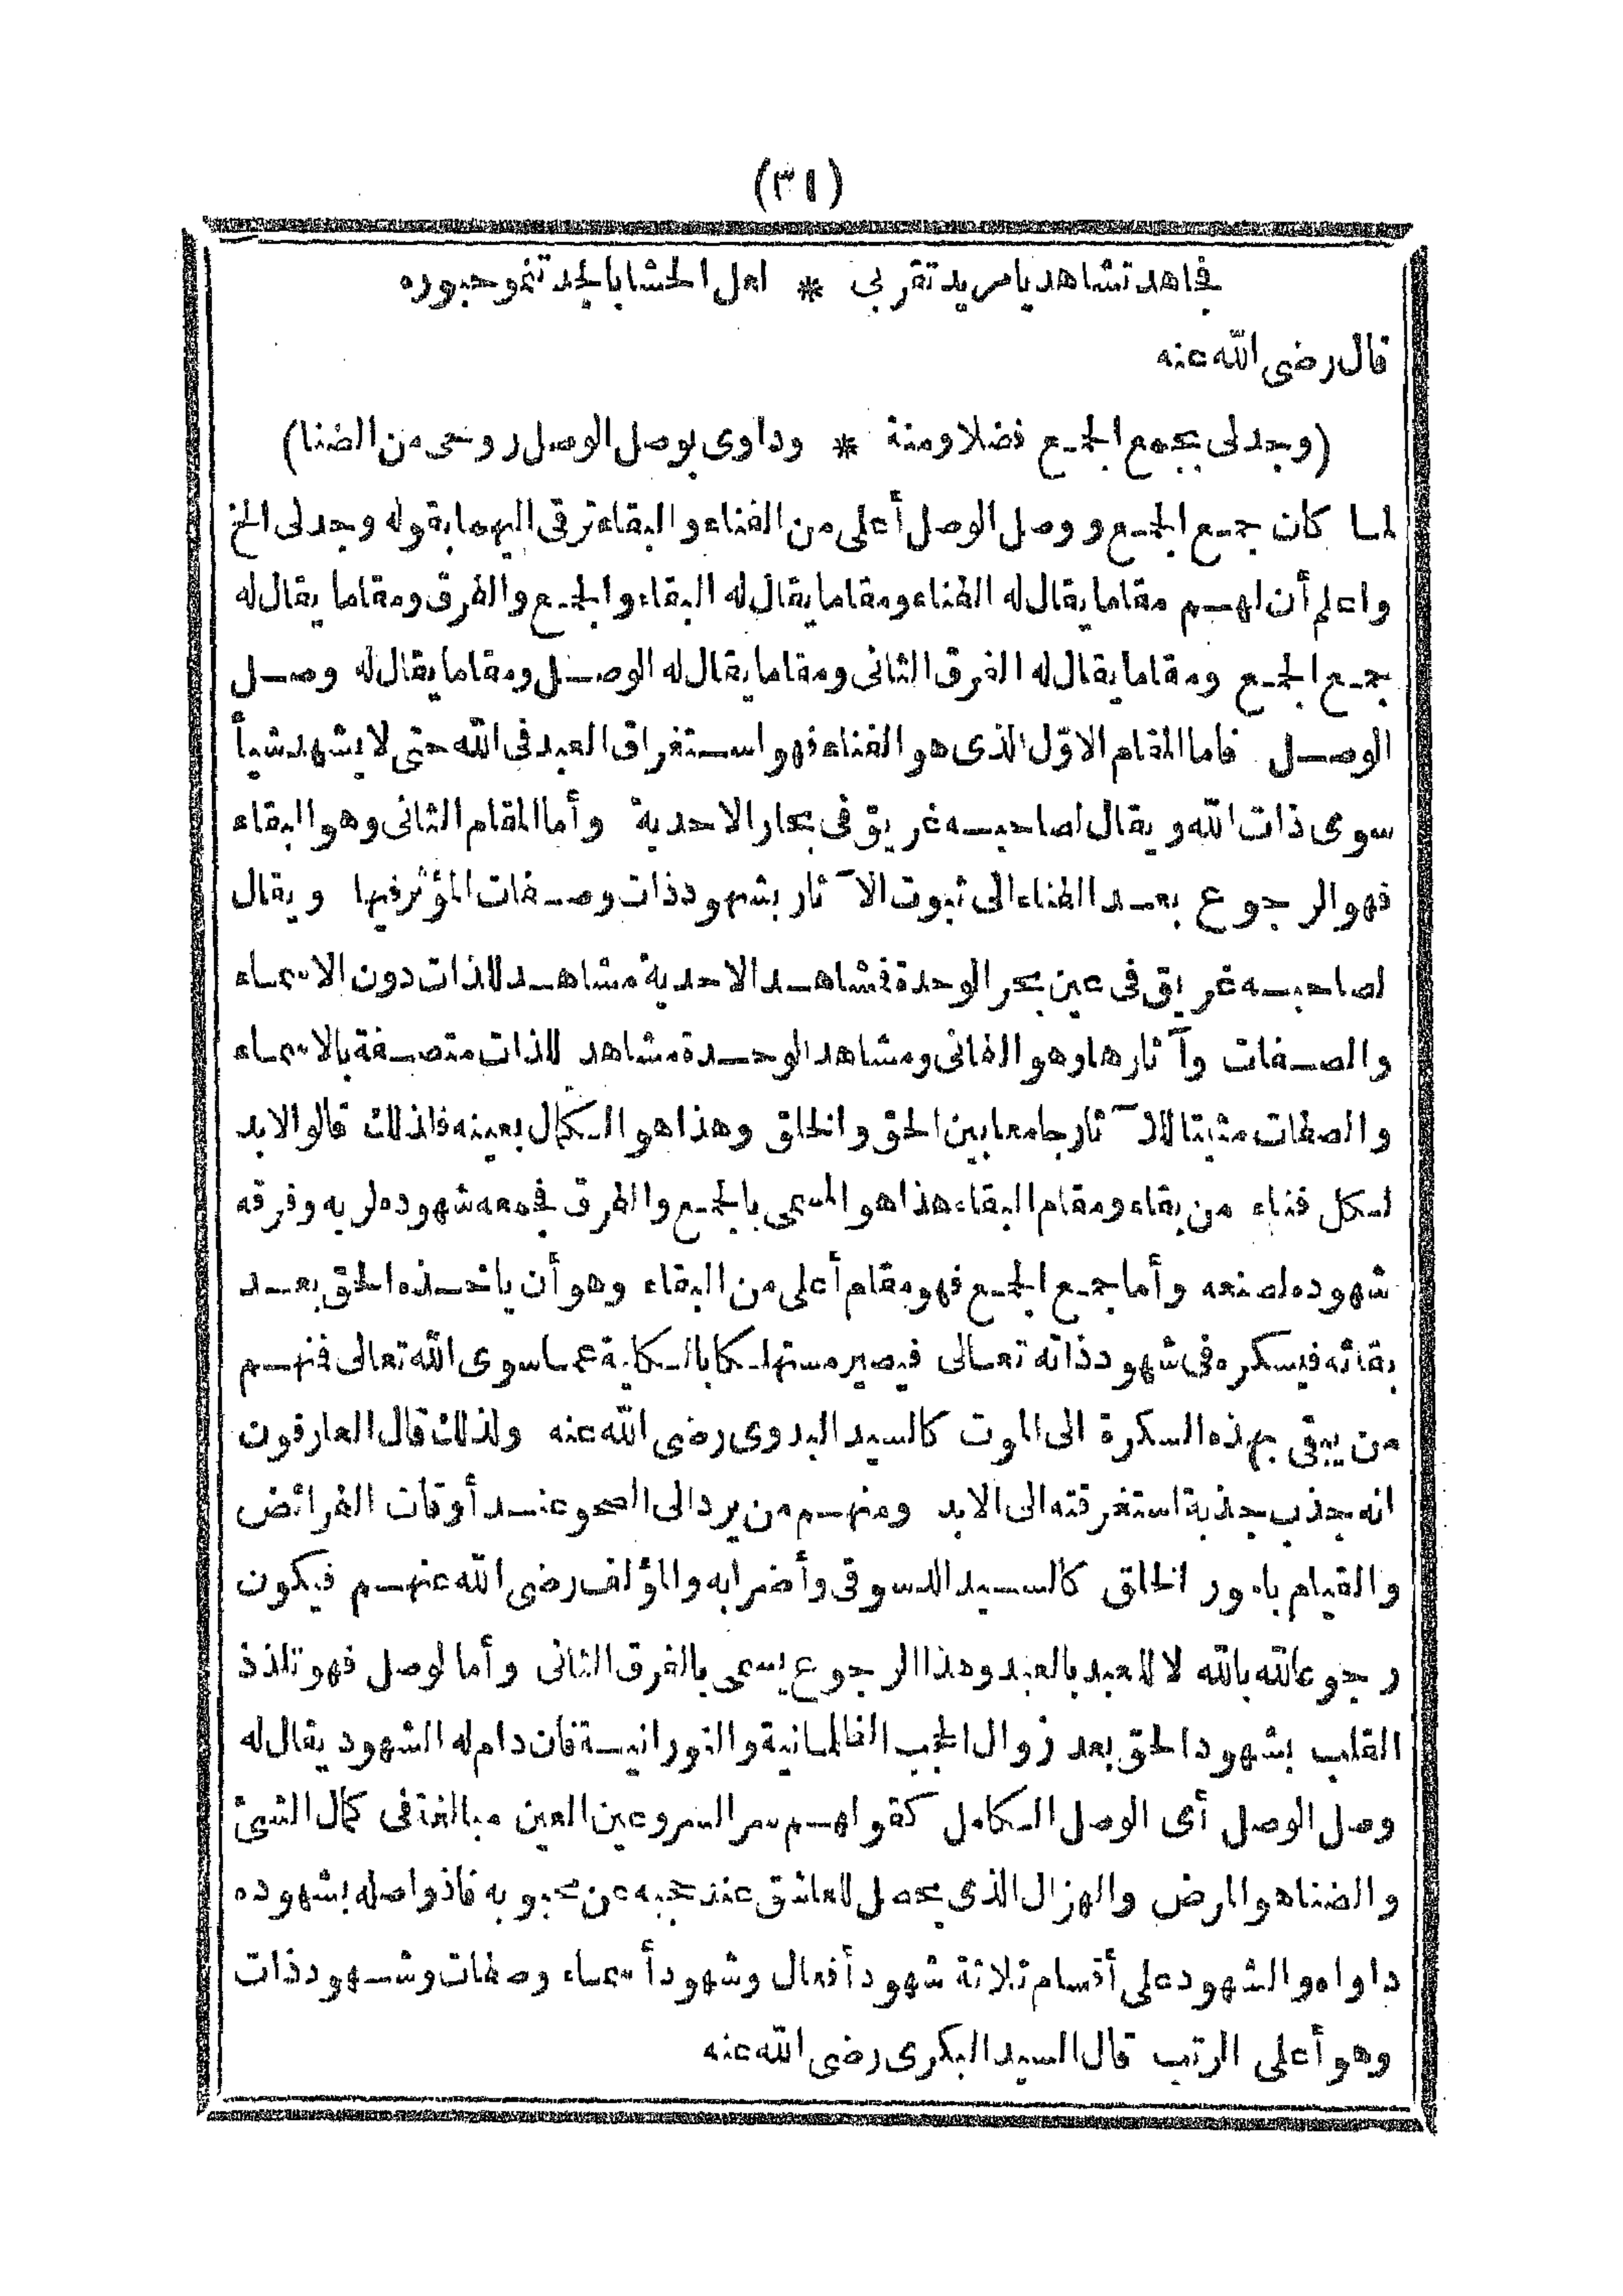 (٣١)
فجاهد تشاهد يا مريد تقربي * لعل الحشا بالجد تنمو حبوره
قال رضى الله عنه
(وجد لى بجمع الجمع فضلا ومنة * وداوى بوصل الوصل روحى من الضنا)
لما كان جمع الجمع ووصل الوصل أعلى من الفناء والبقاء ترقى اليهما بقوله وجد لى الخ
واعلم أن لهم مقاما يقال له الفناء ومقاما يقال له البقاء والجمع والفرق ومقاما يقال له
جمع الجمع ومقاما يقال له الفرق الثانى ومقاما يقال له الوصل ومقاما يقال له وصل
الوصل فاما المقام الاوّل الذى هو الفناء فهو استغراق العبد فى الله حتى لا يشهد شيأ
سوى ذات الله ويقال لصاحبه غريق فى بحار الاحدية وأما المقام الثانى وهو البقاء
فهو الرجوع بعد الفناء الى ثبوت الآثار بشهود ذات وصفات المؤثر فيها ويقال
لصاحبه غريق فى عين بحر الوحدة فشاهد الاحدية مشاهد للذات دون الاسماء
والصفات وآثارها وهو الفانى ومشاهد الوحدة مشاهد للذات متصفة بالاسماء
والصفات مثبتا للآثار جامعا بين الحق والخلق وهذا هو الكمال بعينه فلذلك قالوا لابد
لكل فناء من بقاء ومقام البقاء هذا هو المسمى بالجمع والفرق فجمعه شهوده لربه وفرقه
شهوده لصنعه وأما جمع الجمع فهو مقام أعلى من البقاء وهو أن ياخذه الحق بعد
بقائه فيسكره فى شهود ذاته تعالى فيصير مستهلكا بالكلية عما سوى الله تعالى فمنهم
من يبقى بهذه السكرة الى الموت كالسيد البدوى رضى الله عنه ولذلك قال العارفون
انه جذب جذبة استغرقته الى الابد ومنهم من يرد الى الصحو عند أوقات الفرائض
والقيام بامور الخلق كالسيد الدسوقى وأضرابه والمؤلف رضى الله عنهم فيكون
رجوعا لله بالله لا للعبد بالعبد وهذا الرجوع يسمى بالفرق الثانى وأما لوصل فهو تلذذ
القلب بشهود الحق بعد زوال الحجب الظلمانية والنورانية فان دام له الشهود يقال له
وصل الوصل أى الوصل الكامل كقولهم سر السر وعين العين مبالغة فى كمال الشئ
والضنا هو المرض والهزال الذى يحصل للعاشق عند حجبه عن محبوبه فاذا واصله بشهوده
داواه والشهود على أقسام ثلاثة شهود أفعال وشهود أسماء وصفات وشهود ذات
وهو أعلى الرتب قال السيد البكرى رضى الله عنه